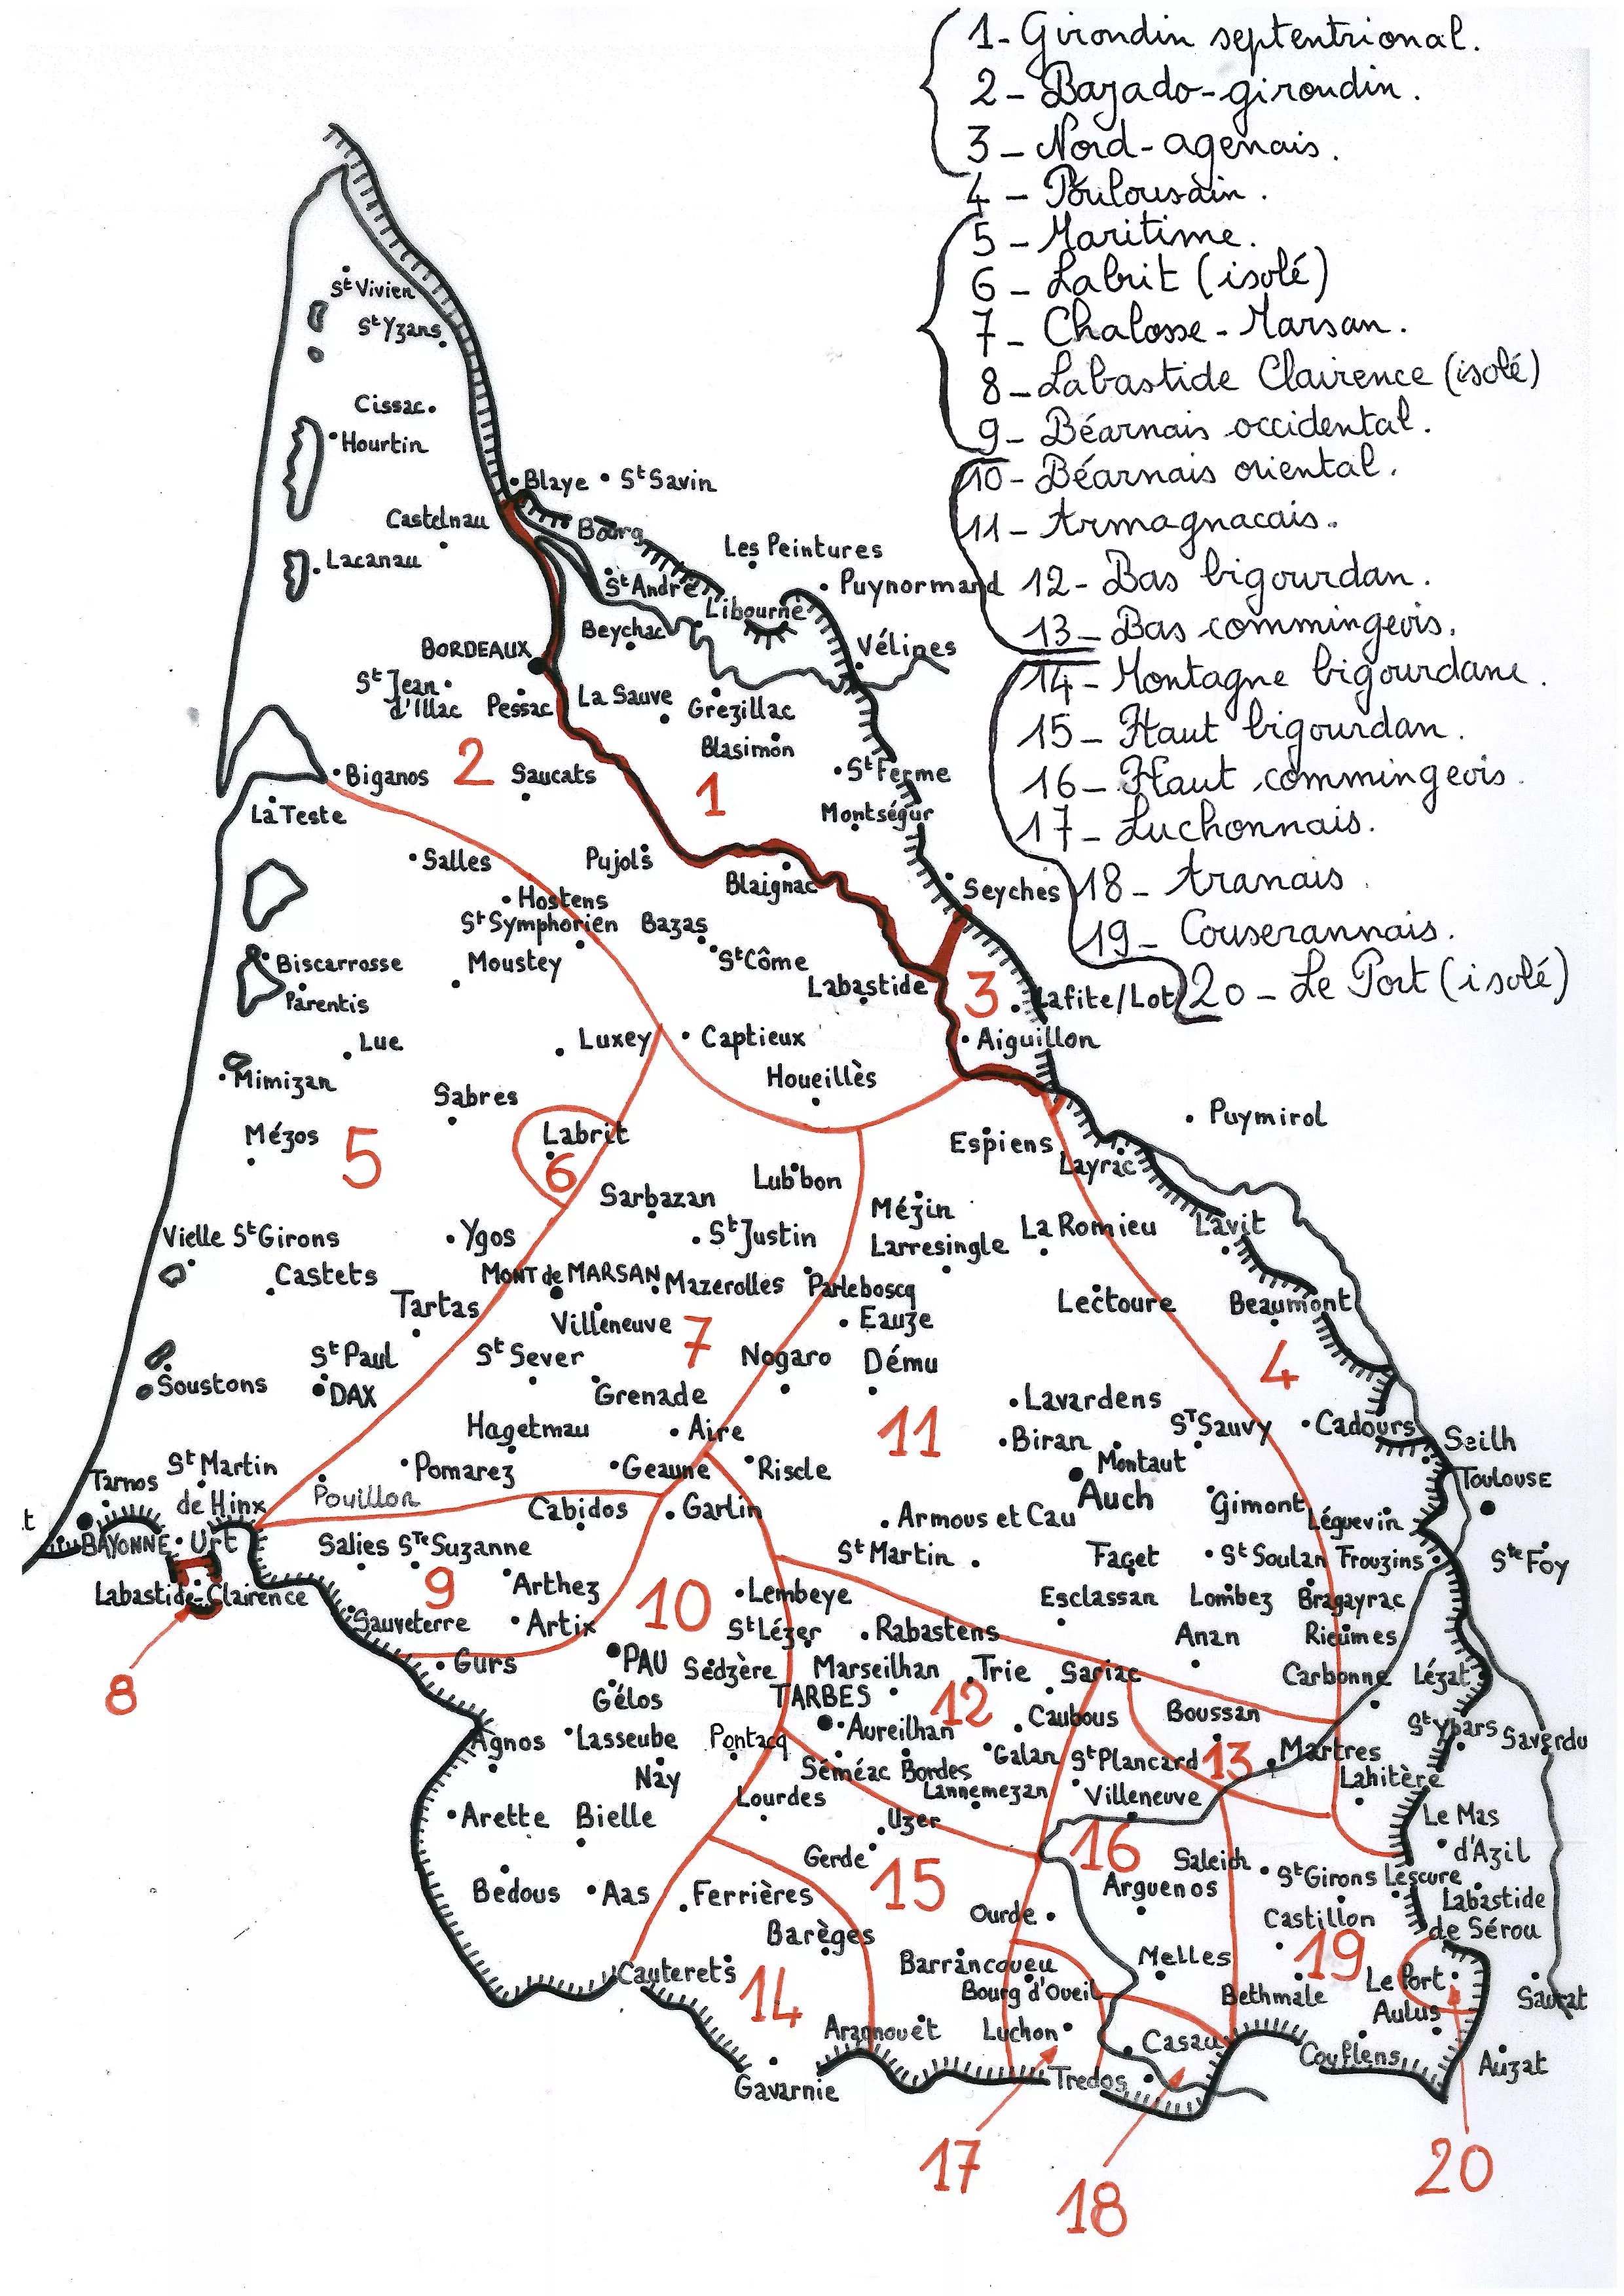 1- Girondin septentrional.
2- Bazado-girondin.
3- Nord-agenais.
4- Toulousain.
5- Maritime.
6- Labrit (isolé)
7- Chalosse-Marsan.
8- Labastide Clairence (isolé)
9- Béarnais occidental.
10- Béarnais oriental.
11- Armagnacais.
12- Bas bigourdan.
13- Bas commingeois.
14- Montagne bigourdane.
15- Haut bigourdan.
16- Haut commingeois.
17- Luchonnais.
18- Aranais
19- Couserannais.
20- Le Port (isolé)
St Vivien
St Yzans
Cissac
Hourtin
Blaye
St Savin
Castelnau
Bourg
Les Peintures
Lacanau
St André
Puynormand
Libourne
Beychac
BORDEAUX
Vélines
St Jean
d'Illac
Pessac
La Sauve
Grézillac
Blasimon
2
Biganos
Saucats
1
St Ferme
La Teste
Montségur
Salles
Pujols
Blaignac
Seyches
Hostens
St Symphorien
Bazas
Biscarrosse
Moustey
St Côme
Labastide
3
Lafite/Lot
Parentis
Lue
Luxey
Captieux
Aiguillon
Mimizan
Houeillès
Sabres
Puymirol
Mézos
5
Labrit
6
Espiens
Layrac
Lubbon
Sarbazan
Mézin
Vielle St Girons
Ygos
St Justin
Larresingle
La Romieu
Lavit
Castets
MONT de MARSAN
Mazerolles
Parleboscq
Tartas
Villeneuve
7
Eauze
Lectoure
Beaumont
St Paul
St Sever
Nogaro
Dému
4
Soustons
DAX
Grenade
Lavardens
11
Hagetmau
Aire
Biran
St Sauvy
Cadours
Seilh
Tarnos
St Martin
de Hinx
Pomarez
Geaune
Riscle
Montaut
Toulouse
Pouillon
Cabidos
Garlin
Auch
Gimont
Armous et Cau
Léguevin
t
BAYONNE
Urt
Salies
Ste Suzanne
St Martin
Faget
St Soulan
Frouzins
Ste Foy
Labastide-Clairence
9
Arthez
10
Lembeye
Esclassan
Lombez
Bragayrac
Sauveterre
Artix
St Lézer
Rabastens
Anan
Rieumes
8
Gurs
PAU
Sedzère
Marseilhan
Trie
Sariac
Carbonne
Lézat
Gélos
TARBES
12
Caubous
Boussan
Agnos
Lasseube
Pontacq
Aureilhan
Galan
St Plancard
13
Martres
St Ybars
Saverdu
Nay
Séméac
Bordes
Lannemezan
Villeneuve
Lahitère
Lourdes
Arette
Bielle
Uzer
Le Mas
d'Azil
Gerde
15
16
Saleich
St Girons
Lescure
Bedous
Aas
Ferrières
Arguenos
Labastide
de Sérou
Ourde
Castillon
Barèges
Barrancoueu
Melles
19
Cauterets
14
Bourg d'Oueil
Bethmale
Le Port
Aulus
Saurat
Aragnouët
Luchon
Casau
Couflens
Auzat
Gavarnie
Tredos
17
18
20